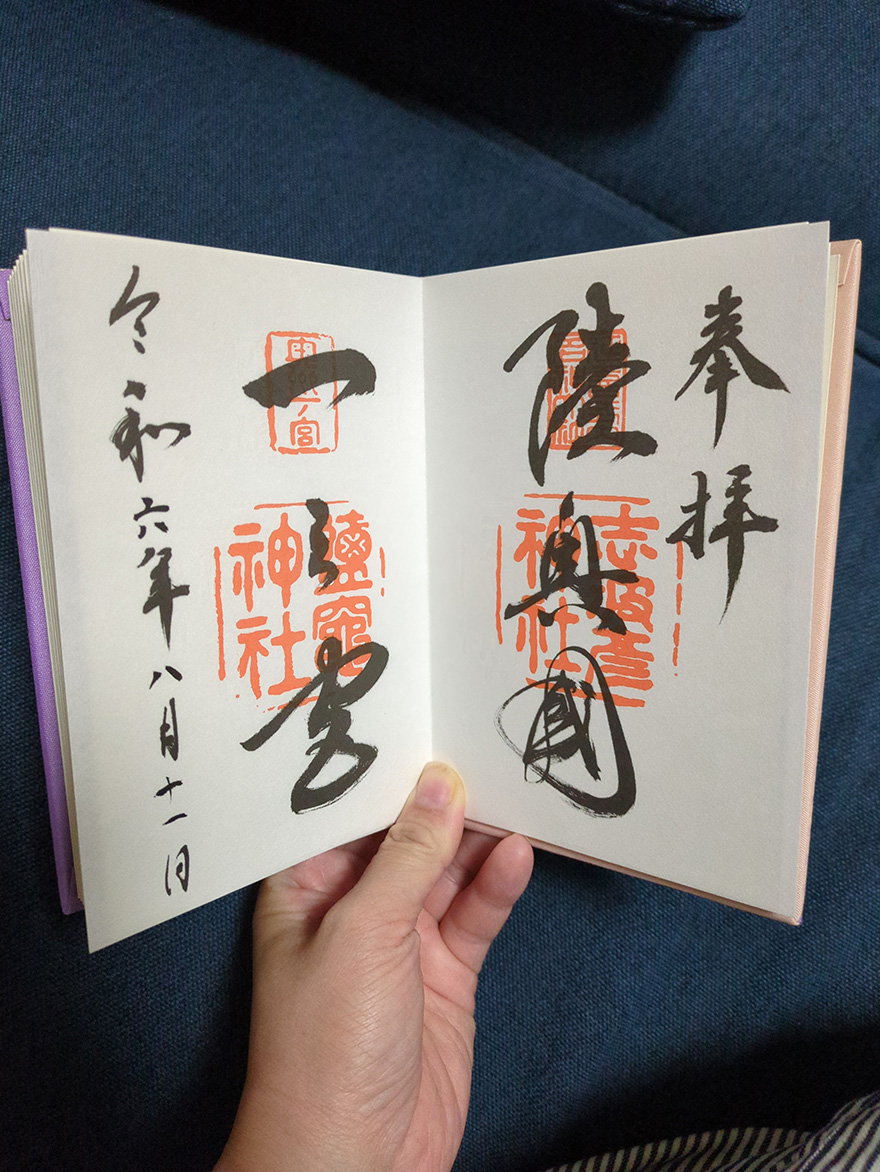 奉拝
陸奥國
志波彦
神社
一之宮
鹽竈
神社
令和六年八月十一日